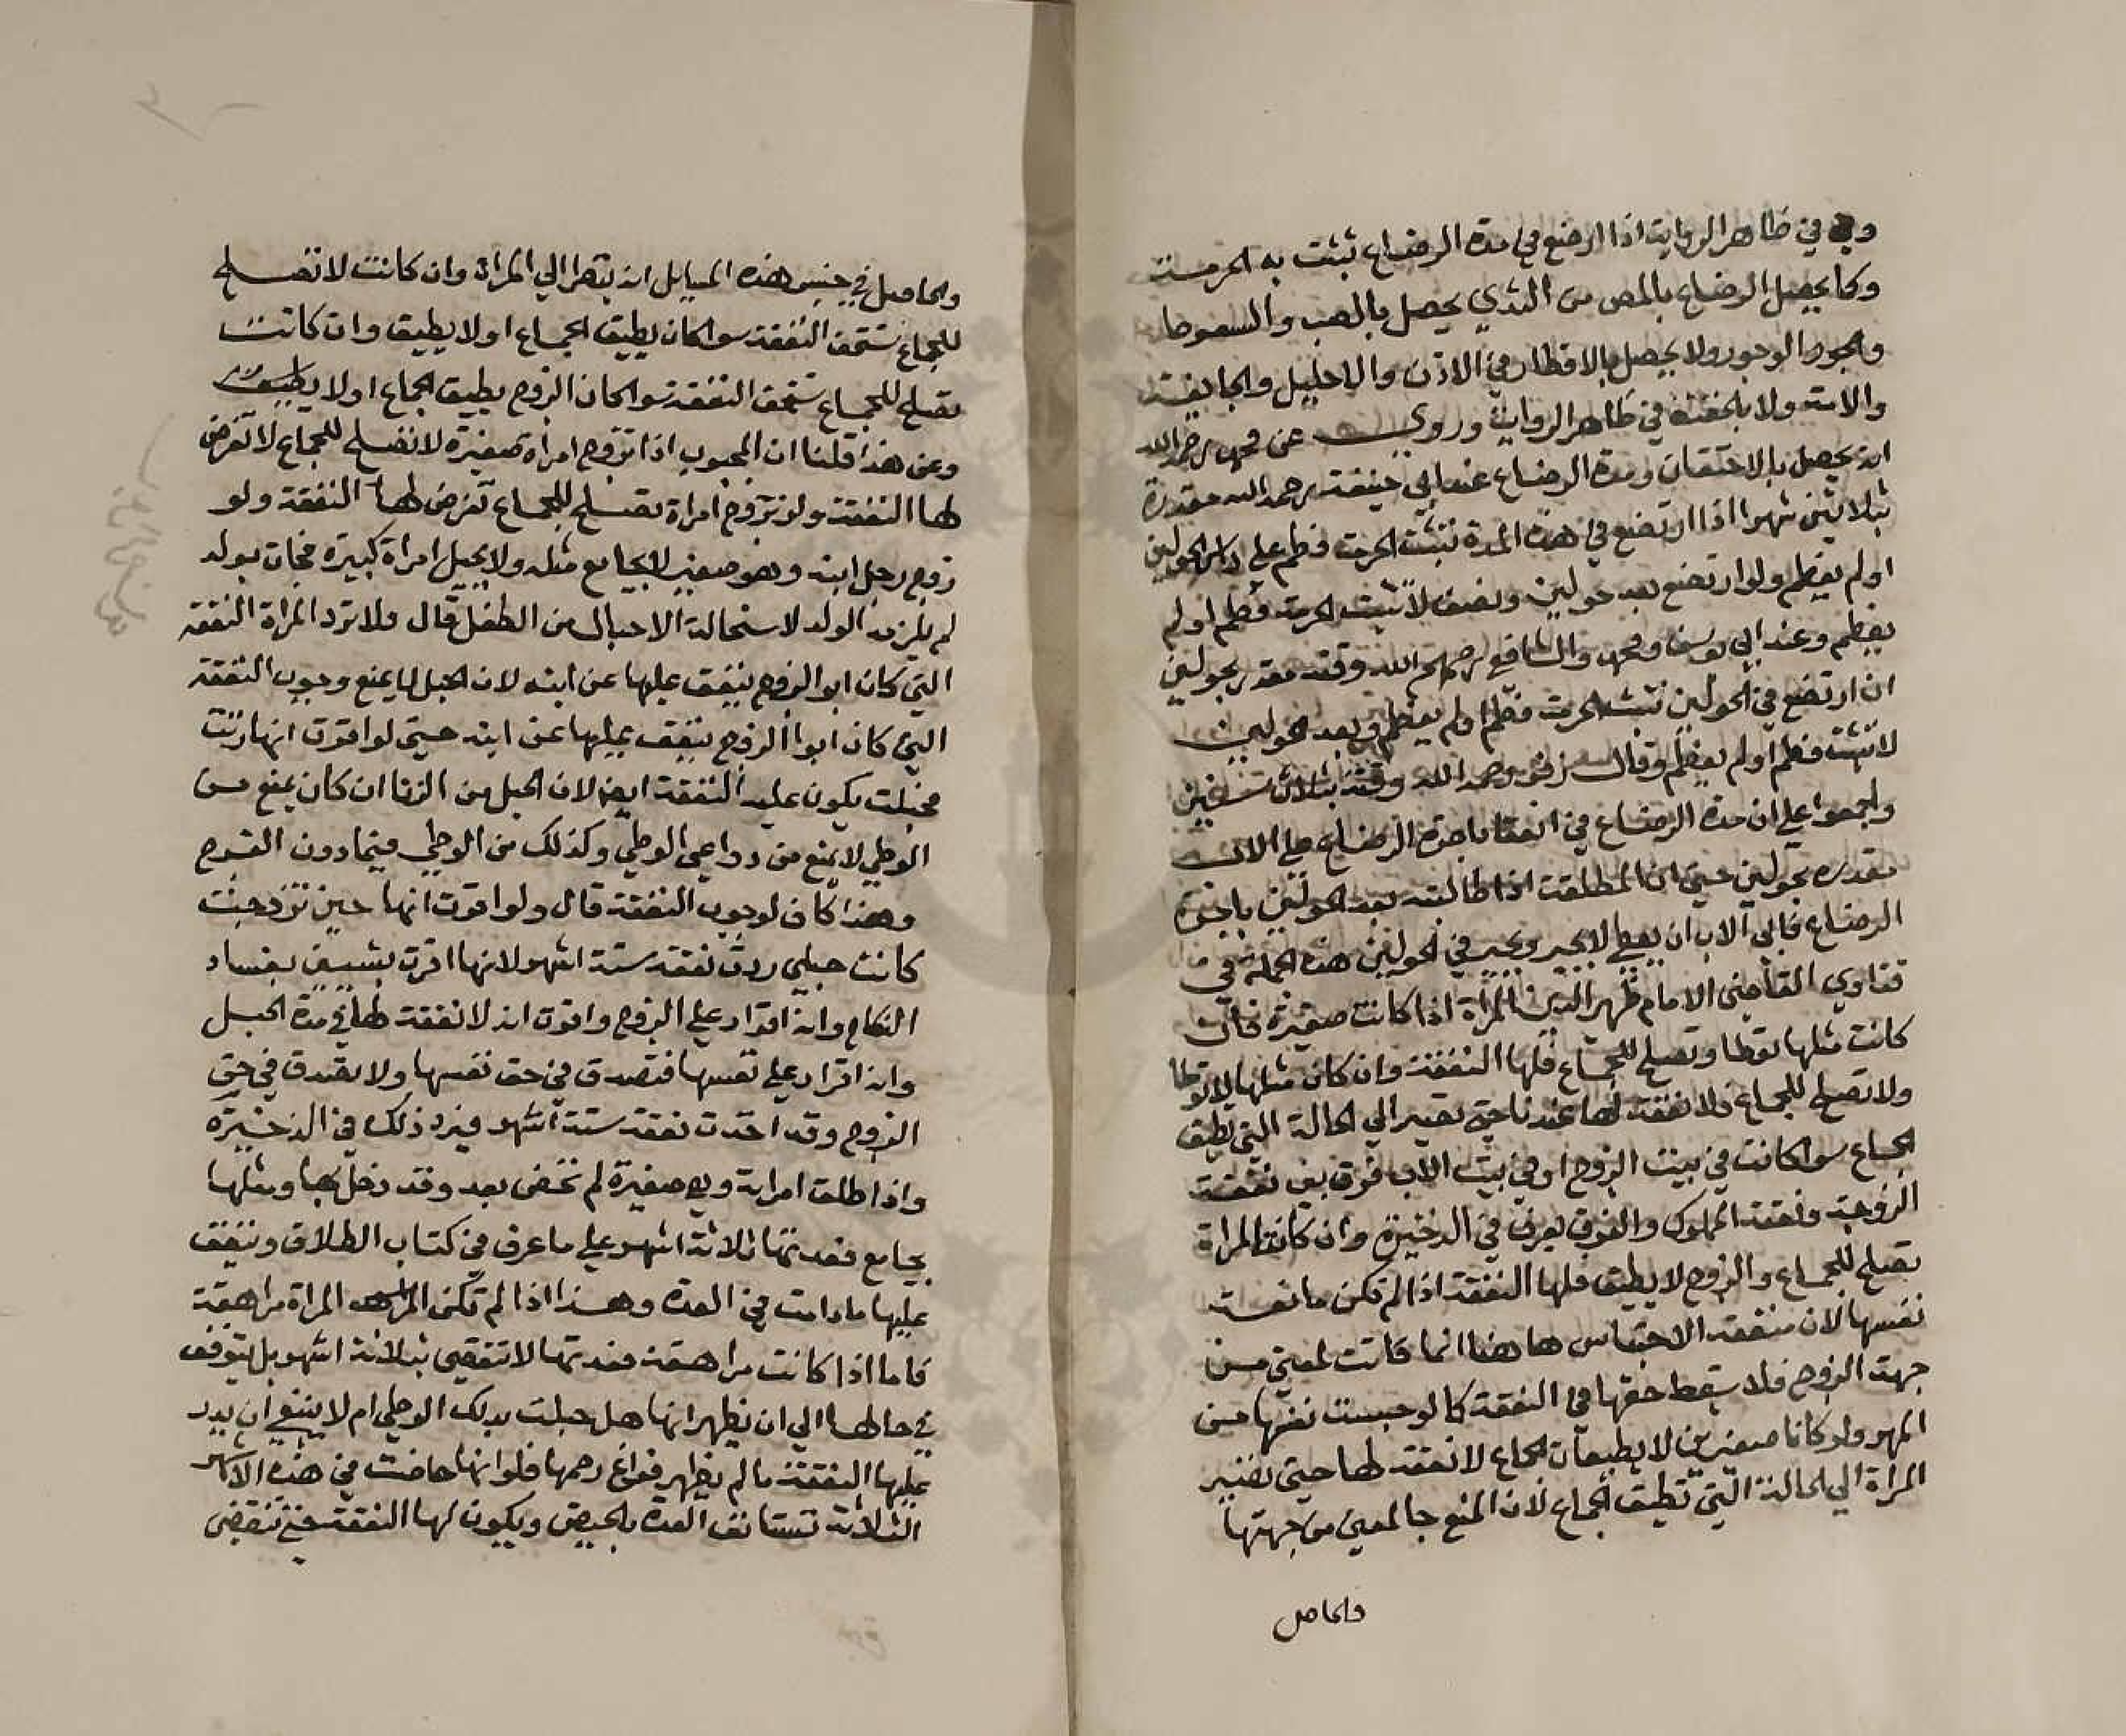 وفي ظاهر الرواية اذا ارضع في مدة الرضاع تثبت به الحرمت
وكما يحصل الرضاع بالمص من الثدي يحصل بالصب والسعوط
والوجور ولا يحصل بالاقطار في الاذن والاحليل والجايفة
والامة ولا بالحقنة في ظاهر الرواية وروي عن محمد رحمه الله
انه يحصل بالاحتقان ومدة الرضاع عند ابي حنيفة رحمه الله مقدرة
بثلاثين شهرا اذا ارتضع في هذه المدة تثبت الحرمت فطم على راس الحولين
او لم يفطم ولو ارتضع بعد حولين ونصف لا تثبت الحرمة فطم او لم
يفطم وعند ابي يوسف ومحمد والشافعي رحمهم الله وقته مقدر بحولين
ان ارتضع في الحولين تثبت الحرمت فطم او لم يفطم وبعد الحولين
لا تثبت فطم او لم يفطم وقال زفر رحمه الله وقته بثلاث سنين
واجمعوا علي ان مدة الرضاع في استحقاق اجرة الرضاع علي الاب
مقدره بحولين حتي ان المطلقة اذا طالبته بعد الحولين باجرة
الرضاع فابي الاب ان يعطي لا يجبر ويجبر في الحولين هذه الجملة في
فتاوي القاضي الامام ظهير الدين المرأة اذا كانت صغيرة فان
كانت مثلها توطا وتصلح للجماع فلها النفقة وان كان مثلها لا توطا
ولا تصلح للجماع فلا نفقة لها عندنا حتي تصير الي الحالة التي تطيق
الجماع سوا كانت في بيت الزوج او في بيت الاب فرق بين نفقة
الزوجية ونفقة المملوك والفرق يعرف في الذخيرة وان كانت المراة
تصلح للجماع والزوج لا يطيق فلها النفقة اذا لم تكن مانعت
نفسها لان منفقة الاحتباس هاهنا انما فاتت لمعني من
جهة الزوج فلا يسقط حقها في النفقة كما لو حبست نفسها من
المهر ولو كانا صغيرين لا يطيقان الجماع لا نفقة لها حتي تصير
المراة الي الحالة التي تطيق الجماع لان المنع جا لمعني من جهتها
والحاصل
والحاصل في جنس هذه المسايل ان ينظر الي المراة وان كانت لا تصلح
للجماع تستحق النفقة سوا كان يطيق الجماع او لا يطيق وان كانت
تصلح للجماع تستحق النفقة سوا كان الزوج يطيق الجماع او لا يطيق
وعن هذا قلنا ان المجبوب اذا تزوج امراة صغيرة لا تصلح للجماع لا تفرض
لها النفقة ولو تزوج امراة تصلح للجماع تفرض لها النفقة ولو
زوج رجل ابنه وهو صغير لا يجامع مثله ولا يحبل امراة كبيرة فجات بولد
لم يلزمه الولد لاستحالة الاحبال من الطفل قال ولا ترد المراة النفقة
التي كان ابو الزوج ينفق عليها عن ابنه لان الحبل لا يمنع وجوب النفقة
التي كان ابوا الزوج ينفق عليها عن ابنه حتي لو اقرت انها زنت
فحبلت يكون عليه النفقة ايضا لان الحبل من الزنا ان كان يمنع من
الوطي لا يمنع من دواعي الوطي وكذلك من الوطي فيما دون الفرج
وهذا كاف لوجوب النفقة قال ولو اقرت انها حين تزوجت
كانت حبلي ردت نفقة ستة اشهر لانها اقرت بشيين بفساد
النكاح وانه اقرار علي الزوج واقرت انه لا نفقة لها في مدة الحبل
وانه اقرار علي نفسها فتصدق في حق نفسها ولا تصدق في حق
الزوج وقد اخذت نفقة ستة اشهر فيرد ذلك في الذخيرة
واذا طلق امراته وهي صغيرة لم تحض بعد وقد دخل بها ومثلها
يجامع فعدتها ثلاثة اشهر علي ما عرف في كتاب الطلاق وينفق
عليها ما دامت في العدة وهذا اذا لم تكن المراة مراهقة
فاما اذا كانت مراهقة فعدتها لا تنقضي بثلاثة اشهر بل يتوقف
في حالها الي ان يظهر انها هل حبلت بذلك الوطي ام لا ينبغي ان يدر
عليها النفقة ما لم يظهر فراغ رحمها فلو انها حاضت في هذه الاشهر
الثلاثة تستانف العدة بالحيض ويكون لها النفقة حتي تنقضي